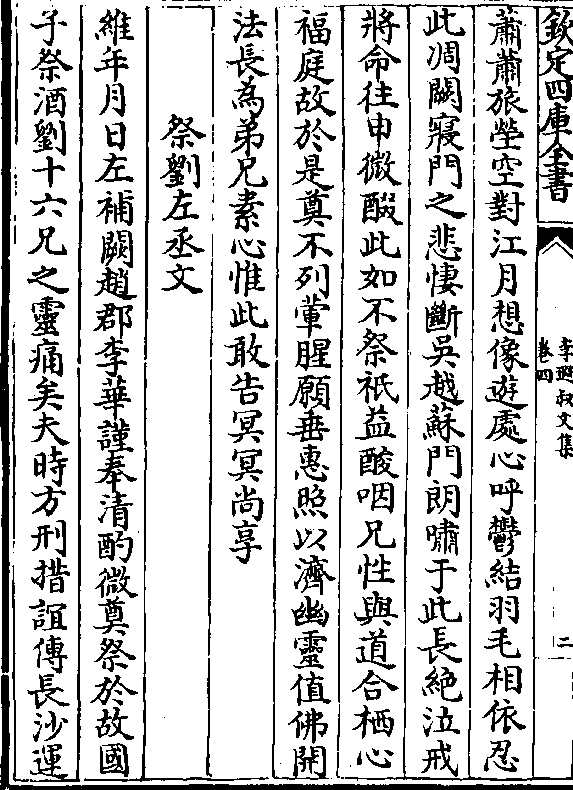 欽定四庫全書
李遐叔文集
卷四
二
蕭蕭旅塋空對江月想像遊處心呼鬱結羽毛相依忍
此凋闕寢門之悲悽斷吳越蘇門朗嘯于此長絶泣戒
將命往申微醊此如不祭祇益酸咽兄性與道合栖心
福庭故於是奠不列葷腥願垂惠照以濟幽靈值佛開
法長為弟兄素心惟此敢告冥冥尚享
祭劉左丞文
維年月日左補闕趙郡李華謹奉清酌微奠祭於故國
子祭酒劉十六兄之靈痛矣夫時方刑措誼傳長沙運